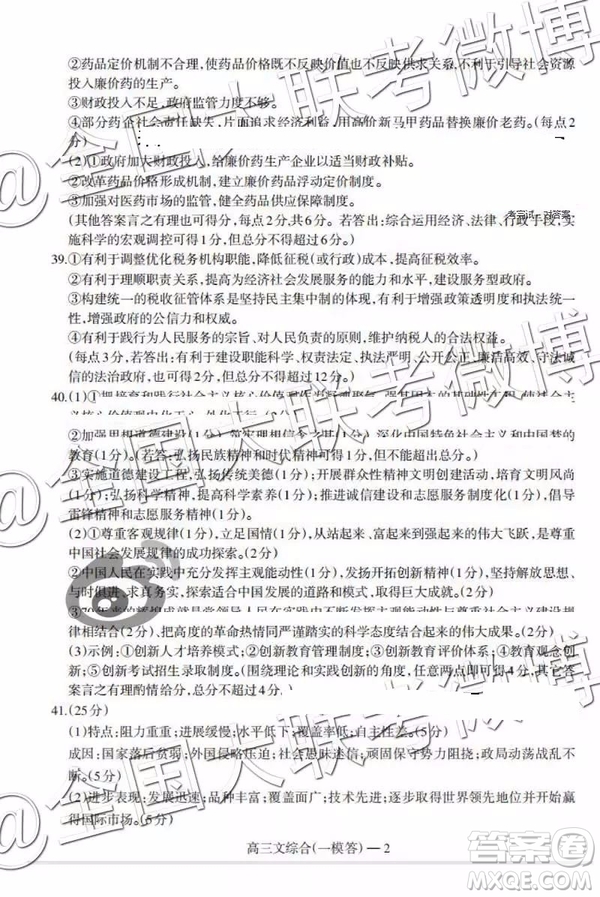 ②药品定价机制不合理,使药品价格既不反映价值也不反映供求关系,不利于引导社会资源
投入廉价药的生产。
③财政投入不足,政府监管力度不够。
④部分药企社会责任缺失,片面追求经济利益,用高价新马甲药品替换廉价老药。(每点2
分)
(2)①政府加大财政投入,给廉价药生产企业以适当财政补贴。
②改革药品价格形成机制,建立廉价药品浮动定价制度。
③加强对医药市场的监管,健全药品供应保障制度。
(其他答案言之有理也可得分,每点2分,共6分。若答出:综合运用经济、法律、行政手段,实
施科学的宏观调控可得1分,但总分不超过6分)
39.①有利于调整优化税务机构职能,降低征税(或行政)成本,提高征税效率。
②有利于理顺职责关系,提高为经济社会发展服务的能力和水平,建设服务型政府。
③构建统一的税收征管体系是坚持民主集中制的体现,有利于增强政策透明度和执法统一
性,增强政府的公信力和权威。
④有利于践行为人民服务的宗旨、对人民负责的原则,维护纳税人的合法权益。
(每点3分,若答出:有利于建设职能科学、权责法定、执法严明、公开公正、廉洁高效、守法诚
信的法治政府,也可得1分,但总分不超过12分)
40.(1)①把培育和践行社会主义核心价值观作为
②加强思想道德建设(1分),筑牢理想信念之基(1分),深化中国特色社会主义和中国梦的
教育(1分)。(若答:弘扬民族精神和时代精神可得1分)
③实施道德建设工程,弘扬传统美德(1分);开展群众性精神文明创建活动,培育文明风尚
(1分);弘扬科学精神,提高科学素养(1分);推进诚信建设和志愿服务制度化(1分),倡导
雷锋精神和志愿服务精神(1分)。
(2)①尊重客观规律(1分),立足国情(1分),从站起来、富起来到强起来的伟大飞跃,是尊重
中国社会发展规律的成功探索。(2分)
②中国人民在实践中充分发挥主观能动性(1分),弘扬开拓创新精神(1分),坚持解放思想、
与时俱进、求真务实,探索中国发展的道路和模式,取得巨大成就。(2分)
规律相结合(2分),把高度的革命热情同严谨踏实的科学态度结合起来的伟大成果。(2分)
(3)示例:①创新人才培养模式;②创新教育管理制度;③创新教育评价体系;④教育观念创
新;⑤创新考试招生录取制度。(围绕理论和实践创新的角度,任意两个即可得4分,其它答
案言之有理酌情给分,总分不超过4分)
41.(25分)
(1)特点:阻力重重;进展缓慢;水平低下;覆盖率低;自主性差。(5分)
成因:国家落后贫弱;外国侵略压迫;社会愚昧迷信;顽固保守势力阻挠;政局动荡战乱不
断。(5分)
(2)进步表现:发展迅速;品种丰富;覆盖面广;技术先进;逐步取得世界领先地位并开始赢
得国际市场。(5分)
高三文综合(一模答) — 2
@全国大联考微博
答案圈
MXQE.COM